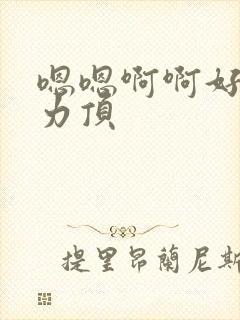 嗯嗯啊啊好
力顶
提里昂蘭尼斯